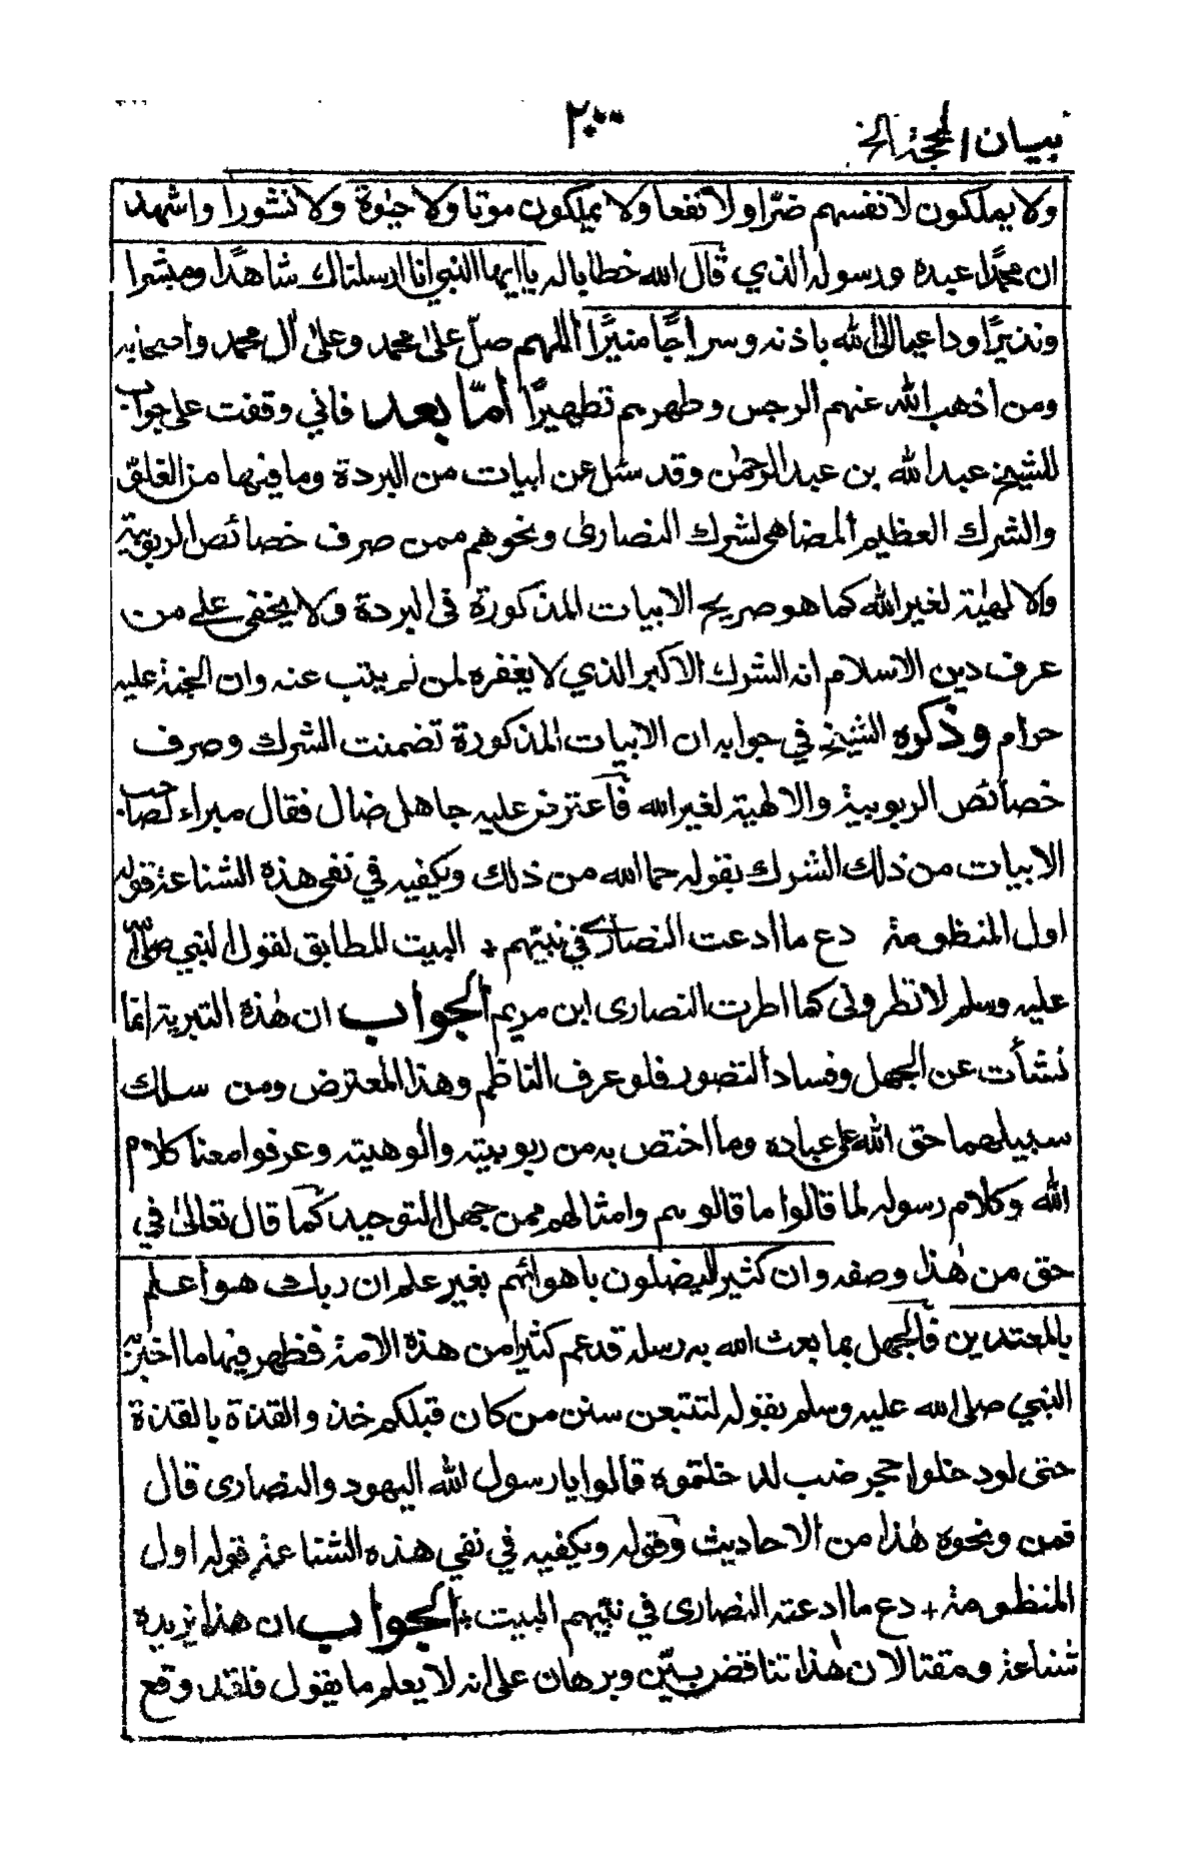 بيان المحجة الخ
٢٠٠
ولا يملكون لانفسهم ضرّا ولا نفعا ولا يملكون موتا ولا حيٰوة ولا نشورا واشهد
ان محمدًا عبده ورسوله الذي قال الله خطابا له يا ايها النبي انا ارسلناك شاهدًا ومبشرا
ونذيرًا وداعيا الى الله باذنه وسراجًا منيرًا اللهم صلّ على محمد وعلى آل محمد واصحابه
ومن اذهب الله عنهم الرجس وطهرهم تطهيرًا أمّا بعد فاني وقفت على جواب
للشيخ عبد الله بن عبد الرحمٰن وقد سئل عن ابيات من البردة وما فيها من الغلوّ
والشرك العظيم المضاهي لشرك النصارى ونحوهم ممن صرف خصائص الربوبية
والالهية لغير الله كما هو صريح الابيات المذكورة في البردة ولا يخفى على من
عرف دين الاسلام انه الشرك الاكبر الذي لا يغفره لمن لم يتب عنه وان الجنة عليه
حرام وذكره الشيخ في جوابه ان الابيات المذكورة تضمنت الشرك وصرف
خصائص الربوبية والالهية لغير الله فأعترض عليه جاهل ضال فقال مبراء لصاحب
الابيات من ذلك الشرك بقوله حماه الله من ذلك ويكفيه في نفي هذه الشناعة قوله
اول المنظومة دع ما ادعت النصارى في نبيّهم + البيت المطابق لقول النبي صلى الله
عليه وسلم لا تطروني كما اطرت النصارى ابن مريم الجواب ان هٰذة التبرية انما
نشأت عن الجهل وفساد التصور فلو عرف الناظم وهذا المعترض ومن سلك
سبيلهما حق الله على عباده وما اختص به من ربوبيته والوهيته وعرفوا معنا كلام
الله وكلام رسوله لما قالوا ما قالوهم وامثالهم ممن جهل التوحيد كما قال تعالىٰ في
حق من هٰذا وصفه وان كثير ليضلون باهوائهم بغير علم ان ربك هو أعلم
بالمعتدين فالجهل بما بعث الله به رسله قد عم كثيرا من هذة الامة فظهر فيها ما اخبر به
النبي صلى الله عليه وسلم بقوله لتتبعن سنن من كان قبلكم حذو القذة بالقذة
حتى لو دخلوا حجر ضب لدخلتموه قالوا يا رسول الله اليهود والنصارى قال
فمن ونحوه هٰذا من الاحاديث وقوله ويكفيه في نفي هذه الشناعة قوله اول
المنظومة + دع ما ادعته النصارى في نبيّهم البيت + الجواب ان هذا يزيده
شناعة ومقتا لان هٰذا تناقض بيّن وبرهان على انه لا يعلم ما يقول فلقد وقع